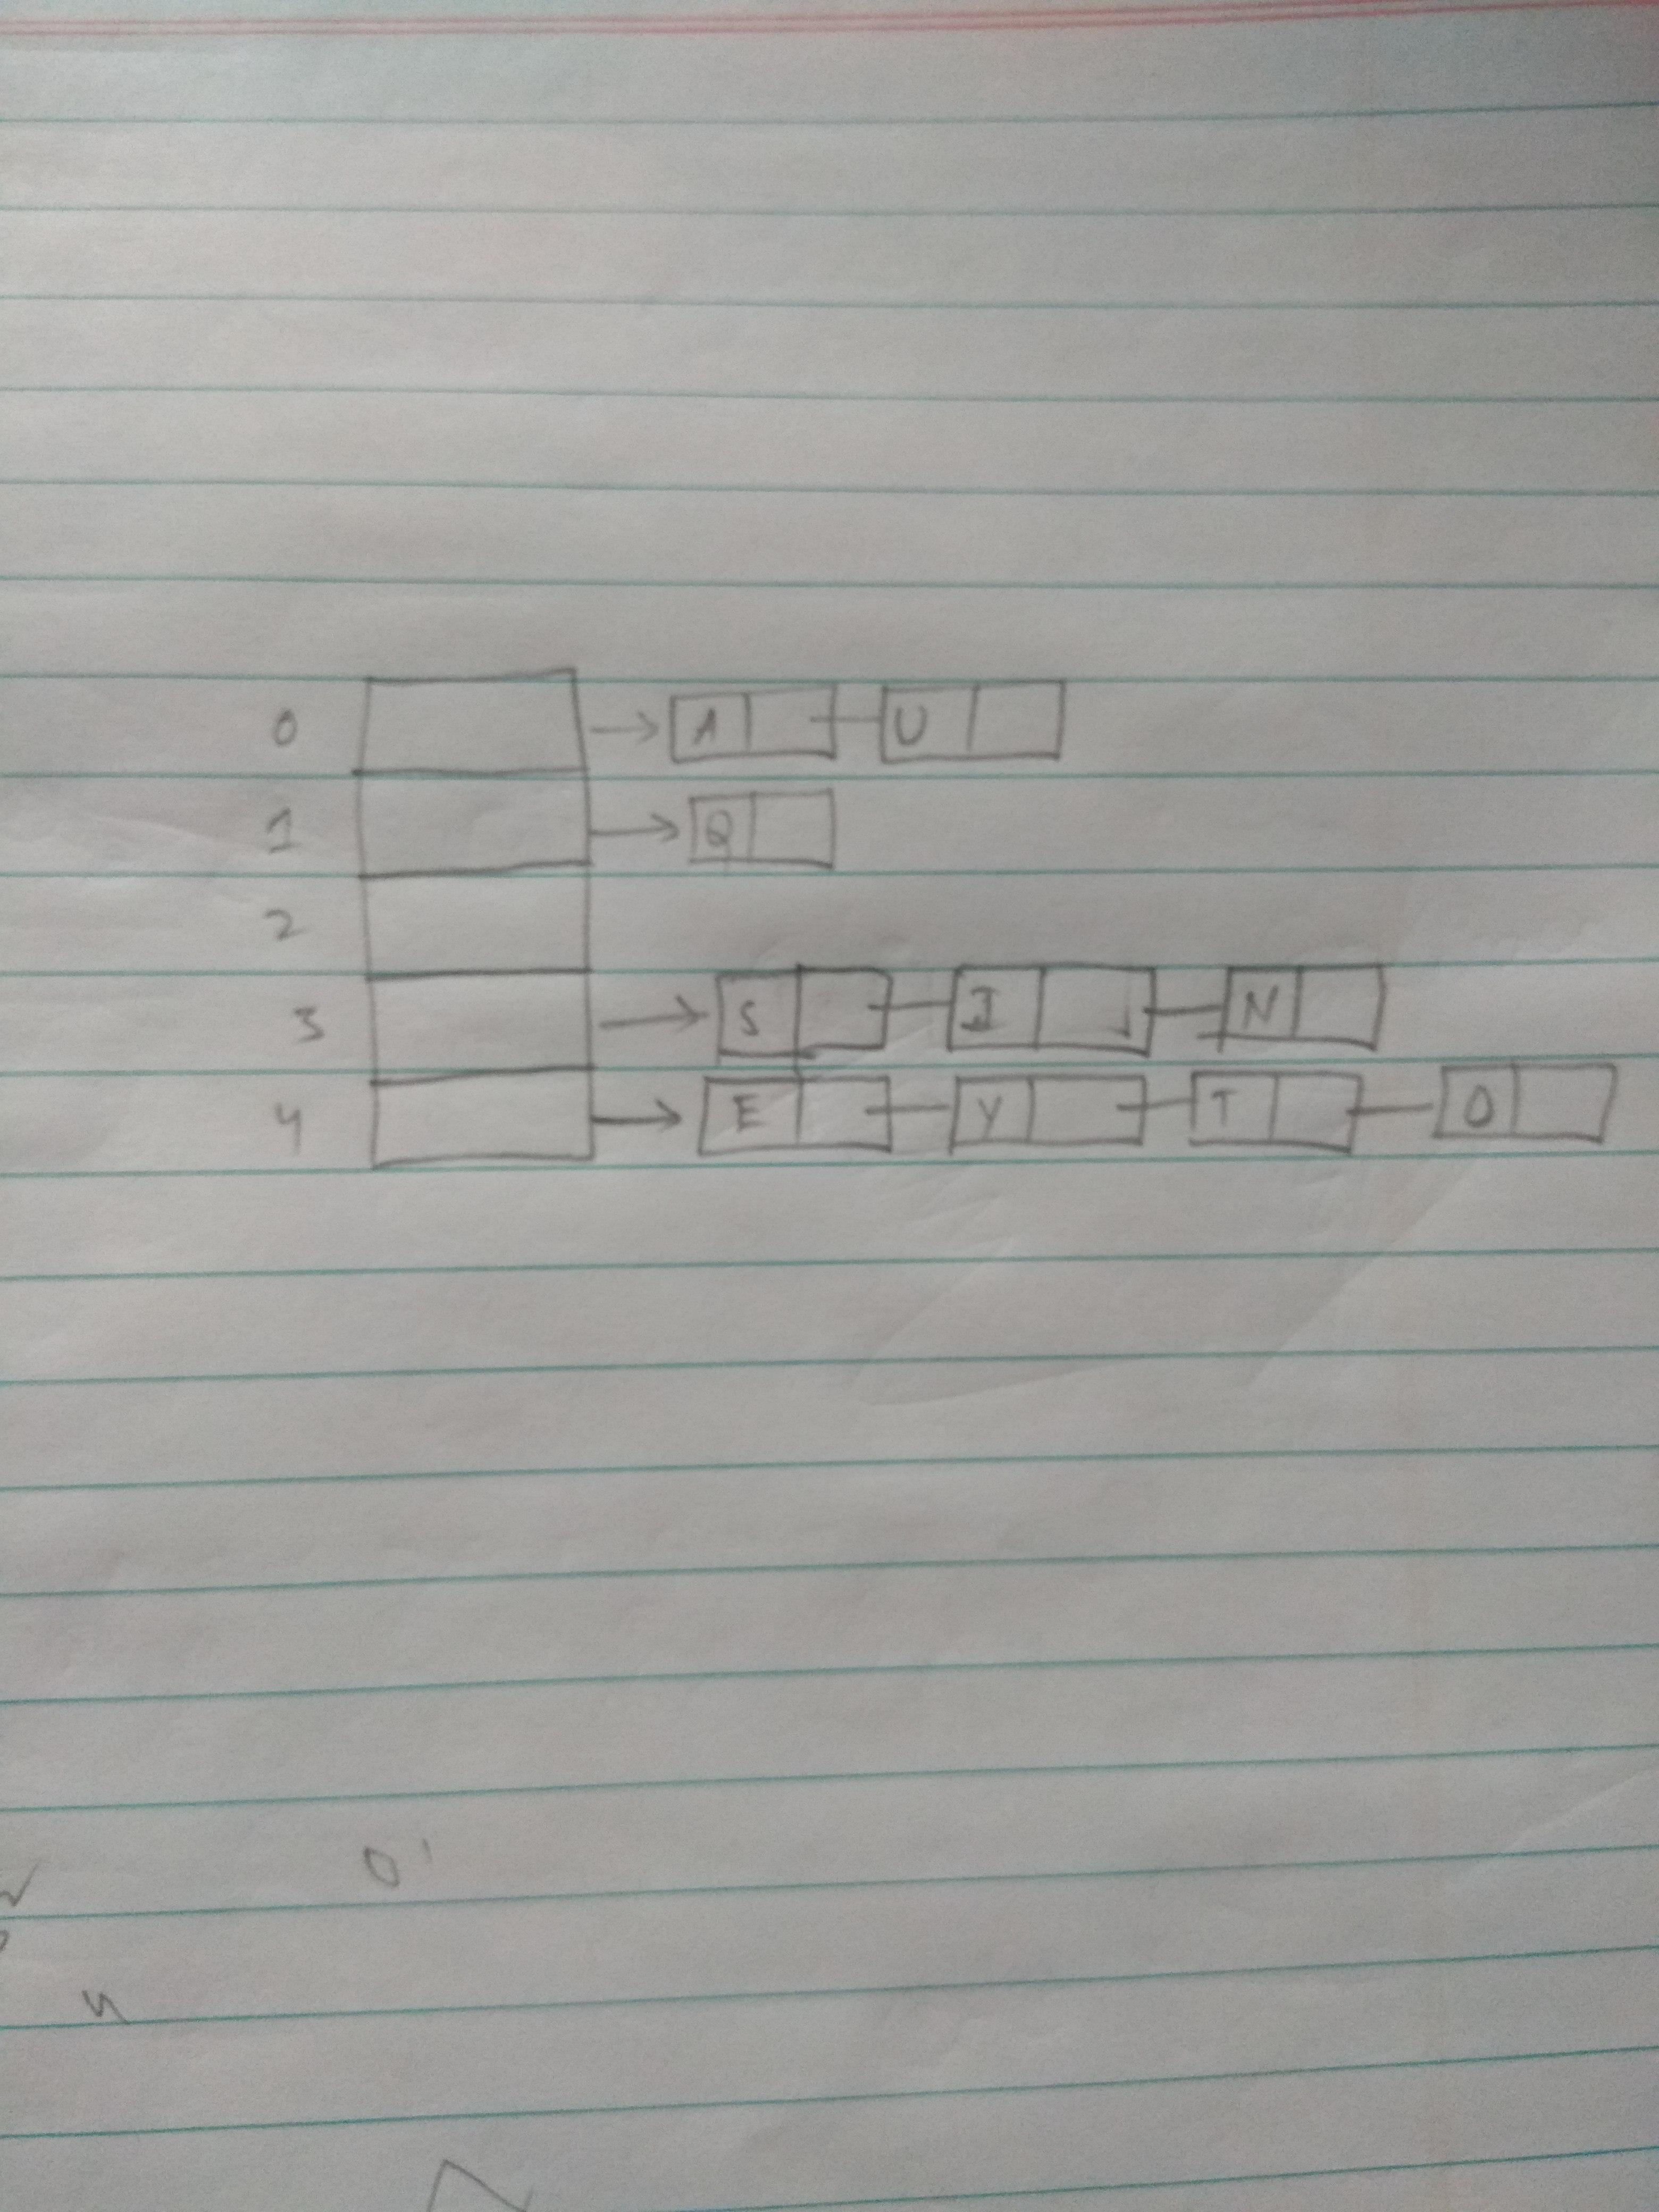 0 A U
1 Q
2
3 S I N
4 E Y T O
0'
n